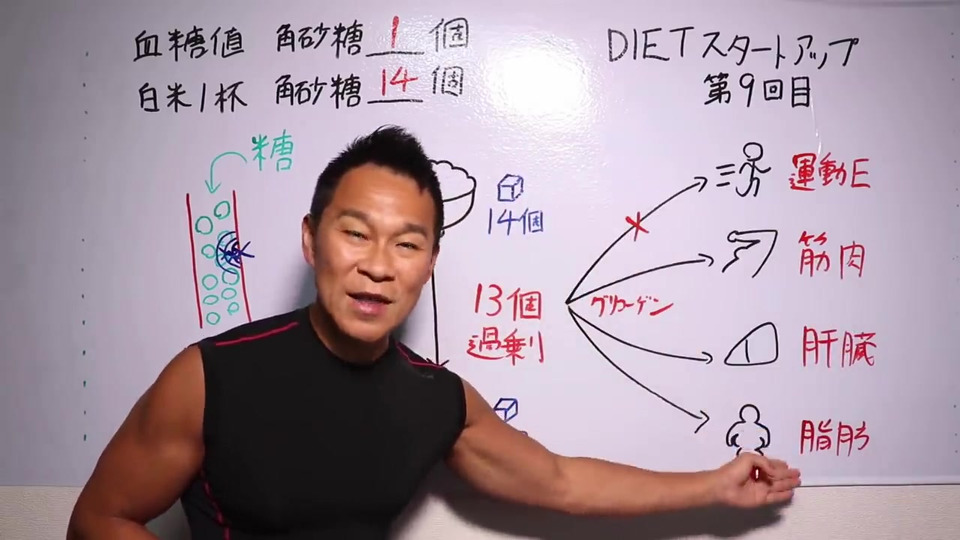 血糖値 角砂糖 1 個
白米1杯 角砂糖 14 個
DIETスタートアップ
第9回目
糖
14個
13個
過乗り
グリコーゲン
運動E
筋肉
肝臓
脂肪